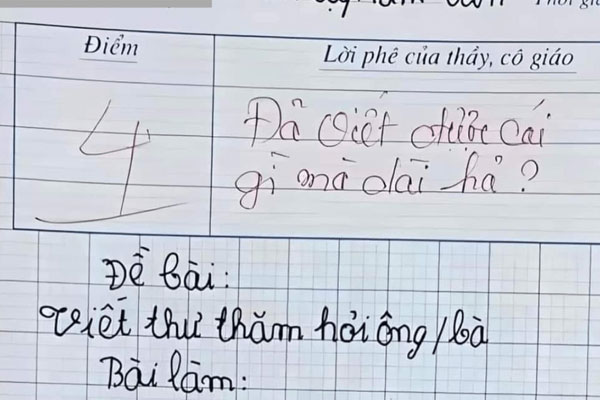 Thời gi
Điểm
Lời phê của thầy, cô giáo
4
Đã viết được cái
gì mà dài hả?
Đề bài:
Viết thư thăm hỏi ông/bà
Bài làm: